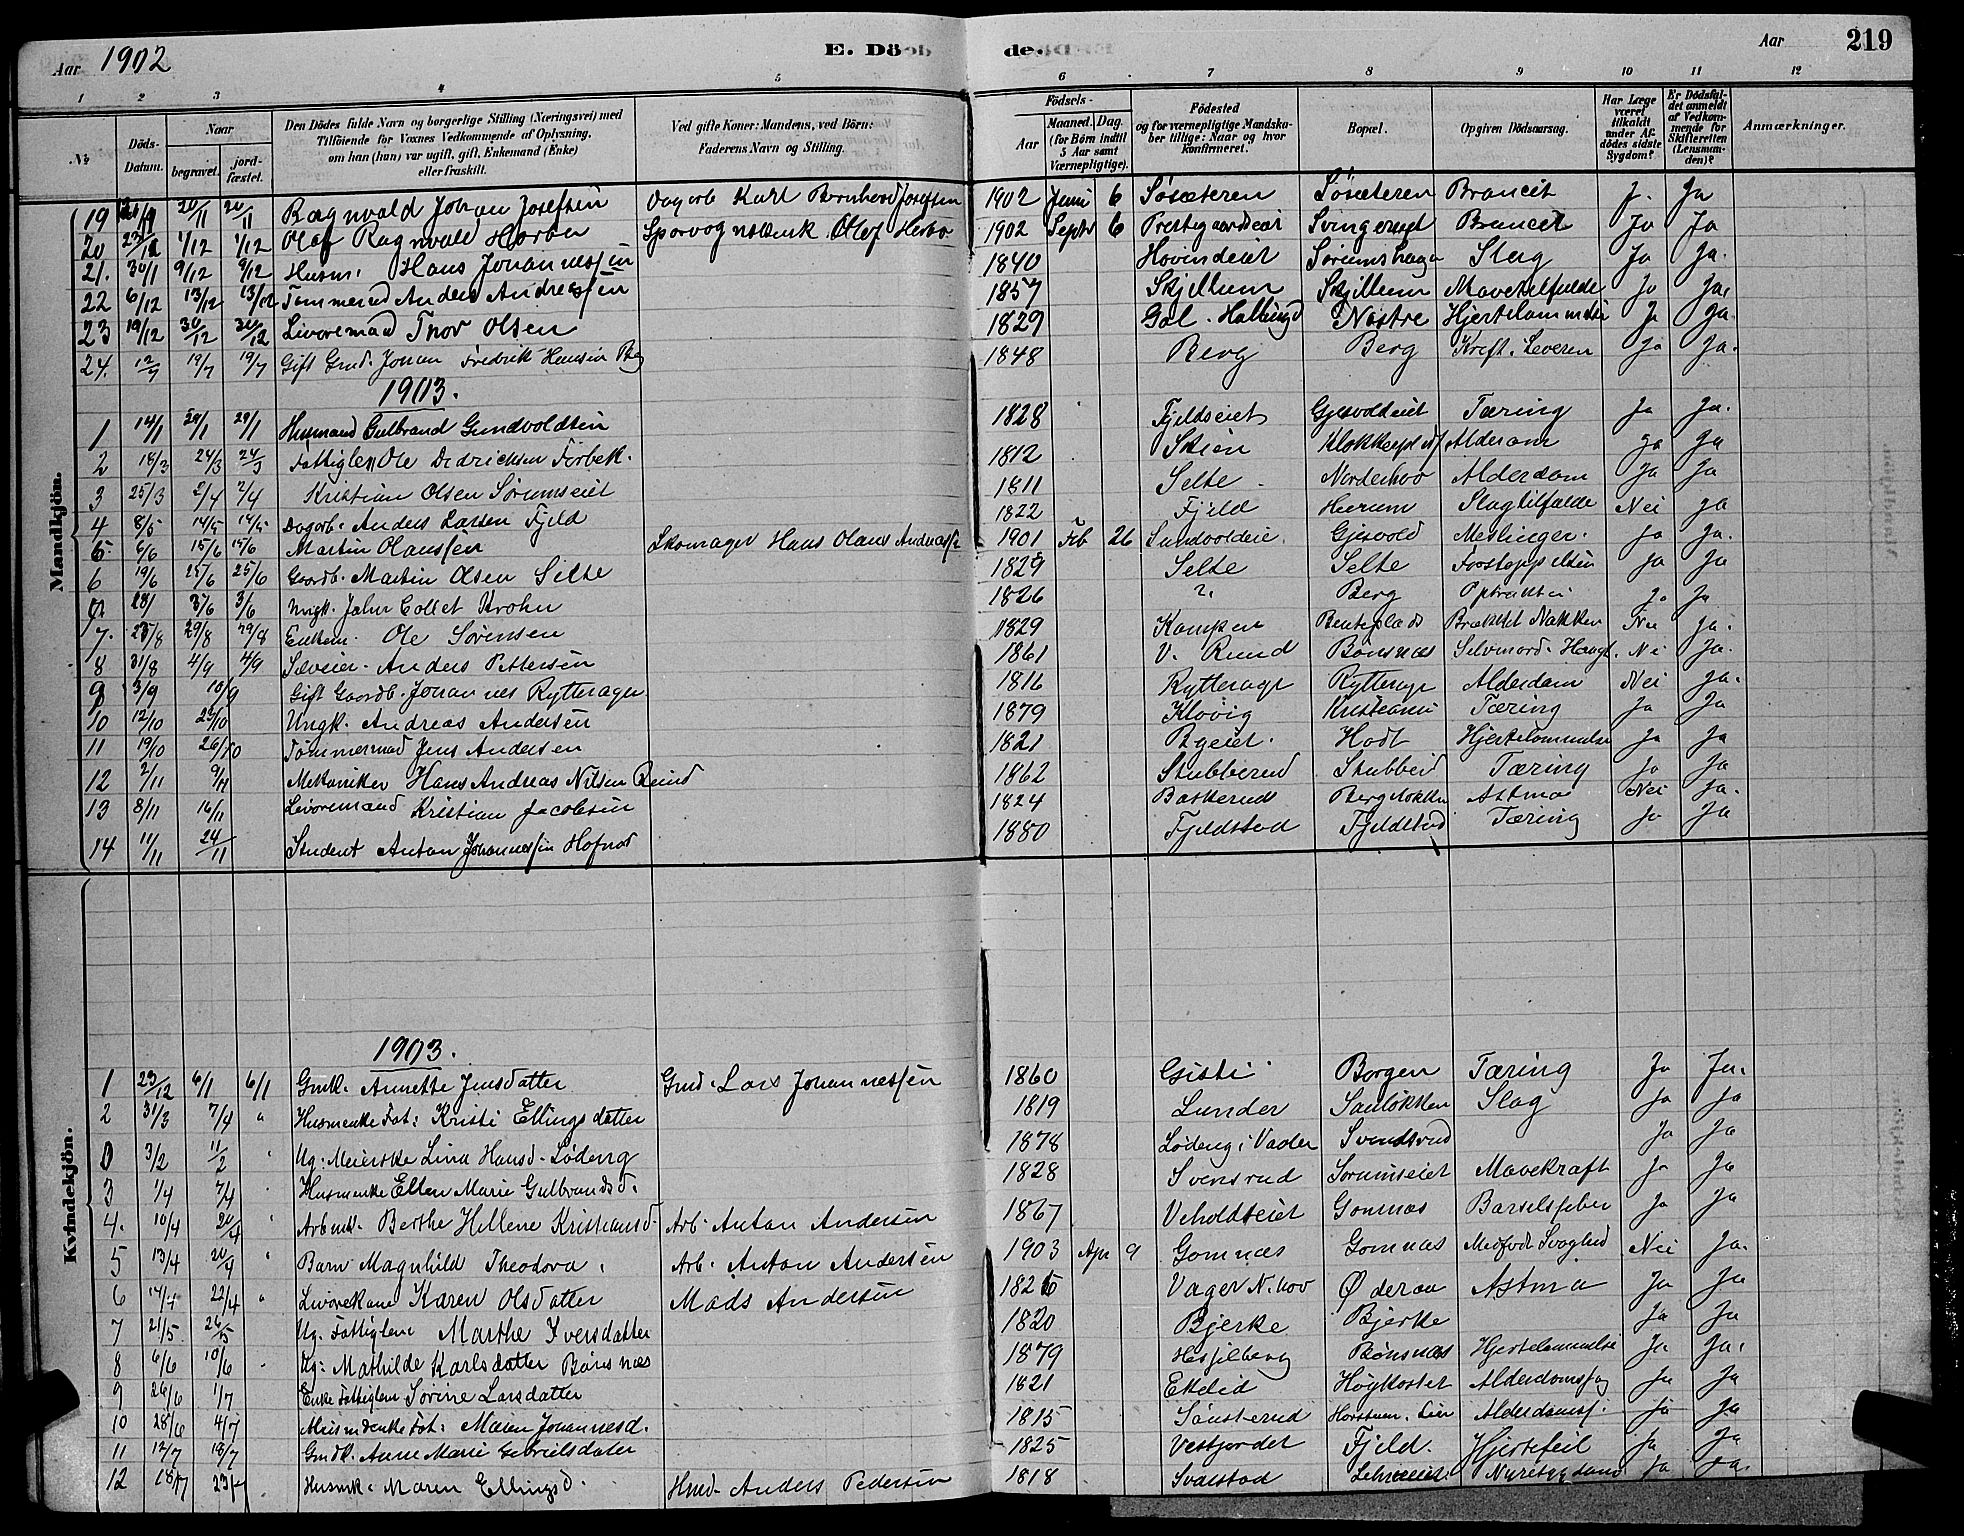 Aar 1902 E. Döde. Aar 219
1 2 3 4 5 6 7 8 9 10 11 12
No
Döds-Datum.
Naar begravet. jord-fæstet.
Den Dödes fulde Navn og borgerlige Stilling (Næringsvei) med Tilföiende for Voxnes Vedkommende af Oplysning, om han (hun) var ugift, gift, Enkemand (Enke) eller fraskilt.
Ved gifte Koner: Mandens, ved Börn: Faderens Navn og Stilling.
Födsels-
Aar Maaned. Dag. (for Börn indtil 5 Aar samt Værnepligtige).
Födested og for værnepligtige Mandskaber tillige: Naar og hvor konfirmeret.
Bopæl.
Opgiven Dödsaarsag.
Har Læge været tilkaldt under Afdödes sidste Sygdom?
Er Dödsfaldet anmeldt af Vedkommende for Skifteretten (Lensmanden)?
Anmærkninger.
Mandkjön.
19 20/11 20/11 Ragnvald Johan Josefsen Dagarb Karl Bernhard Josefsen 1902 Juni 6 Søsæteren Søsæteren Broncit J. Ja
20 1/12 1/12 Olaf Ragnvald Herbo Sporvognsbetjenk. Olaf Herbo 1902 Septr 6 Prestegaardseiet Svingerud Broncit Ja Ja
21. 30/11 9/12 9/12 Husm. Hans Johannessen 1840 Hovindeiet Sørumshaga Slag Ja Ja.
22 6/12 13/12 13/12 Tømmermd Anders Andreassen 1857 Skjellum Skjellum Mavetilfælde Ja Ja.
23 19/12 30/12 30/12 Livøremand Thor Olsen 1829 Gol. Hallingd Nøstre Hjertelammelse Ja Ja.
24. 12/7 19/7 19/7 Gift Grnd. Johan Fredrik Hansen Berg 1848 Berg Berg Kreft i Leveren Ja Ja.
1903.
1 14/1 29/1 29/1 Husmand Gulbrand Gundvoldsen 1828 Fjeldseiet Gjesvoldeiet Tæring Ja Ja.
2 18/3 24/3 24/3 Fattiglem Ole Dedrichsen Forbek. 1812 Skien Alderdom Ja Ja
3 25/3 2/4 2/4 Kristian Olsen Sørumseiet 1811 Selte Norderhov Alderdom Ja Ja
4 8/5 14/5 14/5 Dagarb. Anders Larsen Fjeld 1822 Fjeld Heerum Slagtilfælde Nei Ja
5 6/6 15/6 15/6 Martin Olaussen Skomager Hans Olaus Andreassen 1901 Feb 26 Sundvoldeie. Gjesvold Meslinger. Ja Ja.
6 19/6 25/6 25/6 Gaardb. Martin Olsen Selte 1829 Selte Selte Forstoppelsen Ja Ja
3/6 3/6 Ungk. John Collet Krohn 1826 ?. Berg Ja Ja
7. 25/8 29/8 29/8 Enkem. Ole Sørensen 1829 Kampen Benteplads Brækket Nakken Nei Ja.
8 31/8 4/9 4/9 Sæveier. Anders Pettersen 1861 V. Rund Bønsnæs Selvmord. Hængt. Nei Ja.
9 3/9 10/9 Gift Gaardb. Johannes Rytterager 1816 Rytterage Rytterage Alderdom Nei Ja.
10 12/10 23/10 Ungk. Andreas Andersen 1879 Kløvig Kristiania Tæring Ja Ja
11 19/10 26/10 Tømmermad Jens Andersen 1821 Bgeiet. Hodt Hjertelammelse Ja Ja
12 2/11 9/11 Mekaniker Hans Andreas Nilsen Reind 1862 Stubberud Stubberd Tæring Ja Ja
13 8/11 16/11 Livøremand Kristian Jacobsen 1824 Baskerud Bergeløkken Astma Nei Ja.
14 11/11 24/11 Student Anton Johannessen Hafnor 1880 Fjeldstad Fjeldstad Tæring Ja Ja
Kvindekjön.
1903.
1 23/12 6/1 6/1 Gmk. Annette Jensdatter Gmd. Lars Johannessen 1860 Gisti Borgen Tæring Ja Ja.
2 31/3 7/4 " Husmenke Fat: Kristi Ellingsdatter 1819 Lunder Sauløkken Slag Ja Ja
0 3/2 11/2 " Ug: Meierske Lina Hansd. Lødeng 1878 Lødeng i Svendsrud Ja Ja
3 1/4 7/4 Husmenke Ellen Marie Gulbrandsd. 1828 Svensrud Sørumseiet Mavekræft Ja Ja
4. 10/4 20/4 " Arbmk. Berthe Hellene Kristiansd. Arb. Anton Andersen 1867 Veholdseiet Gomnæs Barselsfeber Ja Ja
5 13/4 20/4 " Barn Magnhild Theodora. Arb. Anton Andersen 1903 Apr 9 Gomnæs Gomnæs Medfødt Svaghed Nei Ja.
6 14/4 22/4 " Livørekone Karen Olsdatter Mads Andersen 1826 Vager N.hov Øderaa Astma Ja Ja
7 21/5 26/5 Ug. Fattiglem Marthe Iversdatter 1820 Bjerke Bjerke Ja Ja
8 6/6 10/6 Ug: Mathilde Karlsdatter Bønsnæs 1879 Hesselberg Bønsnæs Hjertelammelse Ja Ja.
9 26/6 1/7 Enke Fattiglem Sørine Larsdatter 1821 Ekelid Høykorset Alderdomssvag Ja Ja
10 28/6 4/7 Husmdenke Fat: Maren Johannesd. 1815 Sønsterud Alderdomss. Ja Ja
11 12/7 18/7 Gmdk. Anne Marie Gebrielsdater 1825 Vestfjordet Fjeld. Hjertefeil Ja Ja
12 18/7 23/7 Husmk. Maren Ellingsd. Hmd. Anders Pedersen 1818 Svarstad Nyresygdom Ja Ja.